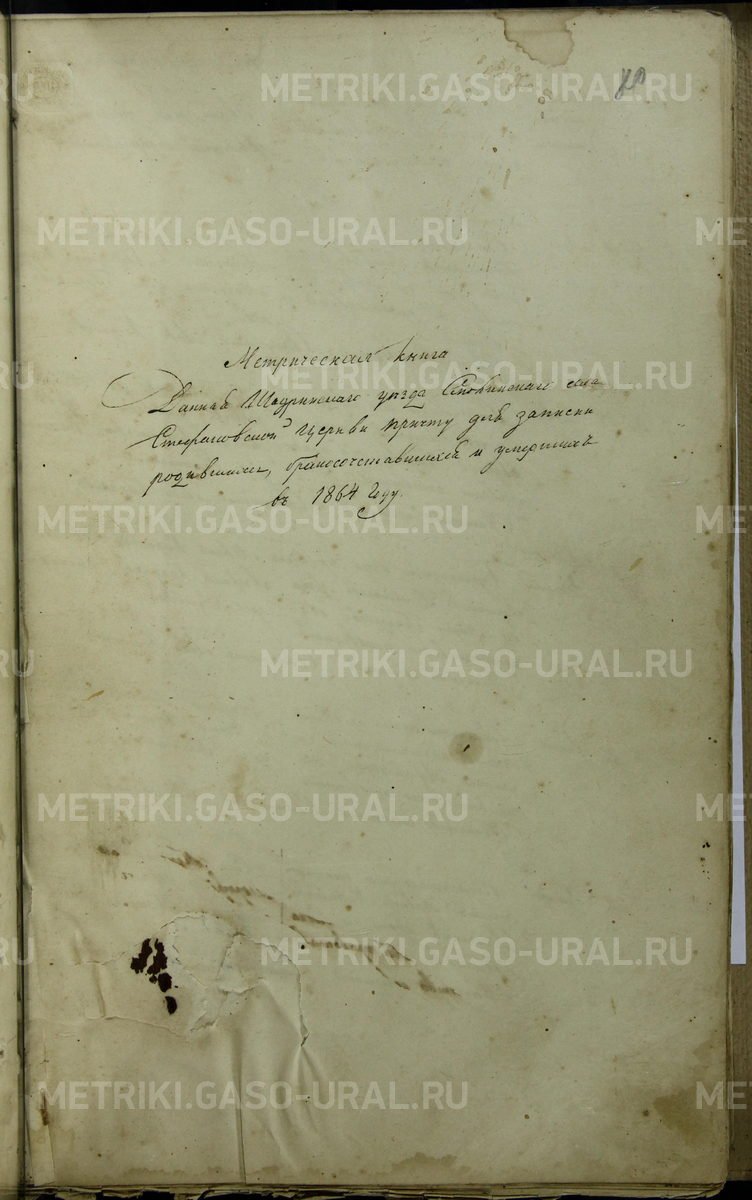 METRIKI.GASO-URAL.RU
METRIKI.GASO-URAL.RU
Метрическая книга
Данная Шадринскаго уезда села
Стефановской церкви причту для записки
родившихся, бракосочетавшихся и умершихъ
въ 1864 году.
METRIKI.GASO-URAL.RU
METRIKI.GASO-URAL.RU
METRIKI.GASO-URAL.RU
METRIKI.GASO-URAL.RU
METRIKI.GASO-URAL.RU